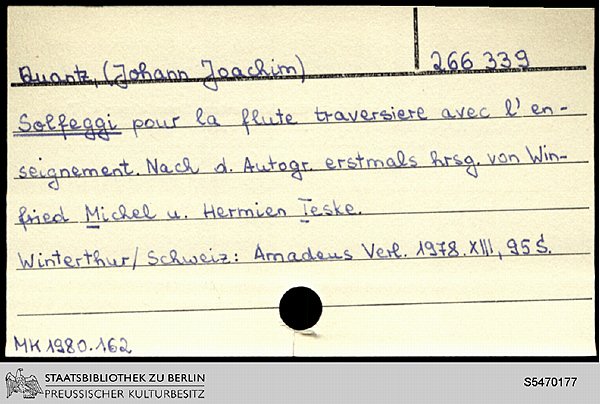 Quantz, (Johann Joachim) 266 339
Solfeggi pour la flute traversiere avec l'en-
seignement. Nach d. Autogr. erstmals hrsg. von Win-
fried Michel u. Hermien Teske.
Winterthur/Schweiz: Amadeus Verl. 1978. XIII, 95 S.
MK 1980.162
STAATSBIBLIOTHEK ZU BERLIN
PREUSSISCHER KULTURBESITZ
S5470177